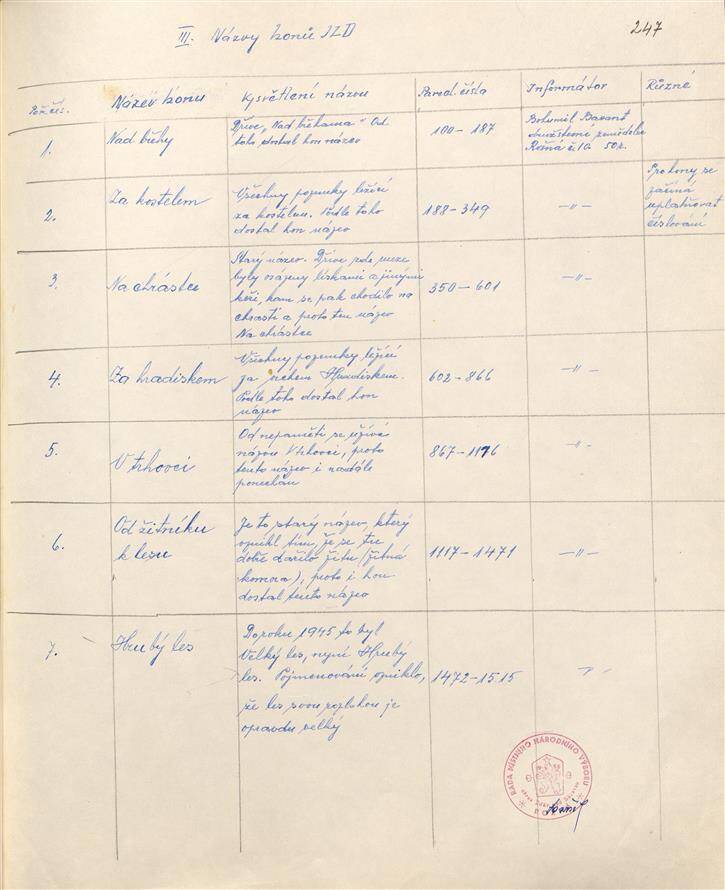 III. Názvy honů JZD
247
Poř. čís.
Název honu
Vysvětlení názvu
Parcel. čísla
Informátor
Různé
1.
Nad břehy
Dříve „Nad břehama“ Od
toho dostal hon název
100-187
Bohumil
družstevní zemědělec
Rožná č. 50r.
2.
Za kostelem
Všechny pozemky ležící
za kostelem. Podle toho
dostal hon název
188-349
-"-
Prohony se
začíná
uplatňovat
číslování
3.
Na chrástce
Starý název. Dříve zde meze
byly osázeny lískami a jinými
keři, kam se pak chodilo na
chrastí a proto ten název
Na chrástce
350-601
-"-
4.
Za hradiskem
Všechny pozemky ležící
za Hradiskem.
Podle toho dostal hon
název
602-866
-"-
5.
V trhovci
Od nepaměti se užívá
názvu V trhovci, proto
tento název i nadále
ponechán
867-1116
-"-
6.
Od žitníku
k lesu
Je to starý název, který
vznikl tím, že se tu
dobře dařilo žitu (žitná
komora), proto i hon
dostal tento název
1117-1471
-"-
7.
Hrubý les
Do roku 1945 to byl
Velký les, nyní Hrubý
les. Pojmenování vzniklo,
že les svou rozlohou je
opravdu velký
1472-1515
-"-
RADA MÍSTNÍHO NÁRODNÍHO VÝBORU